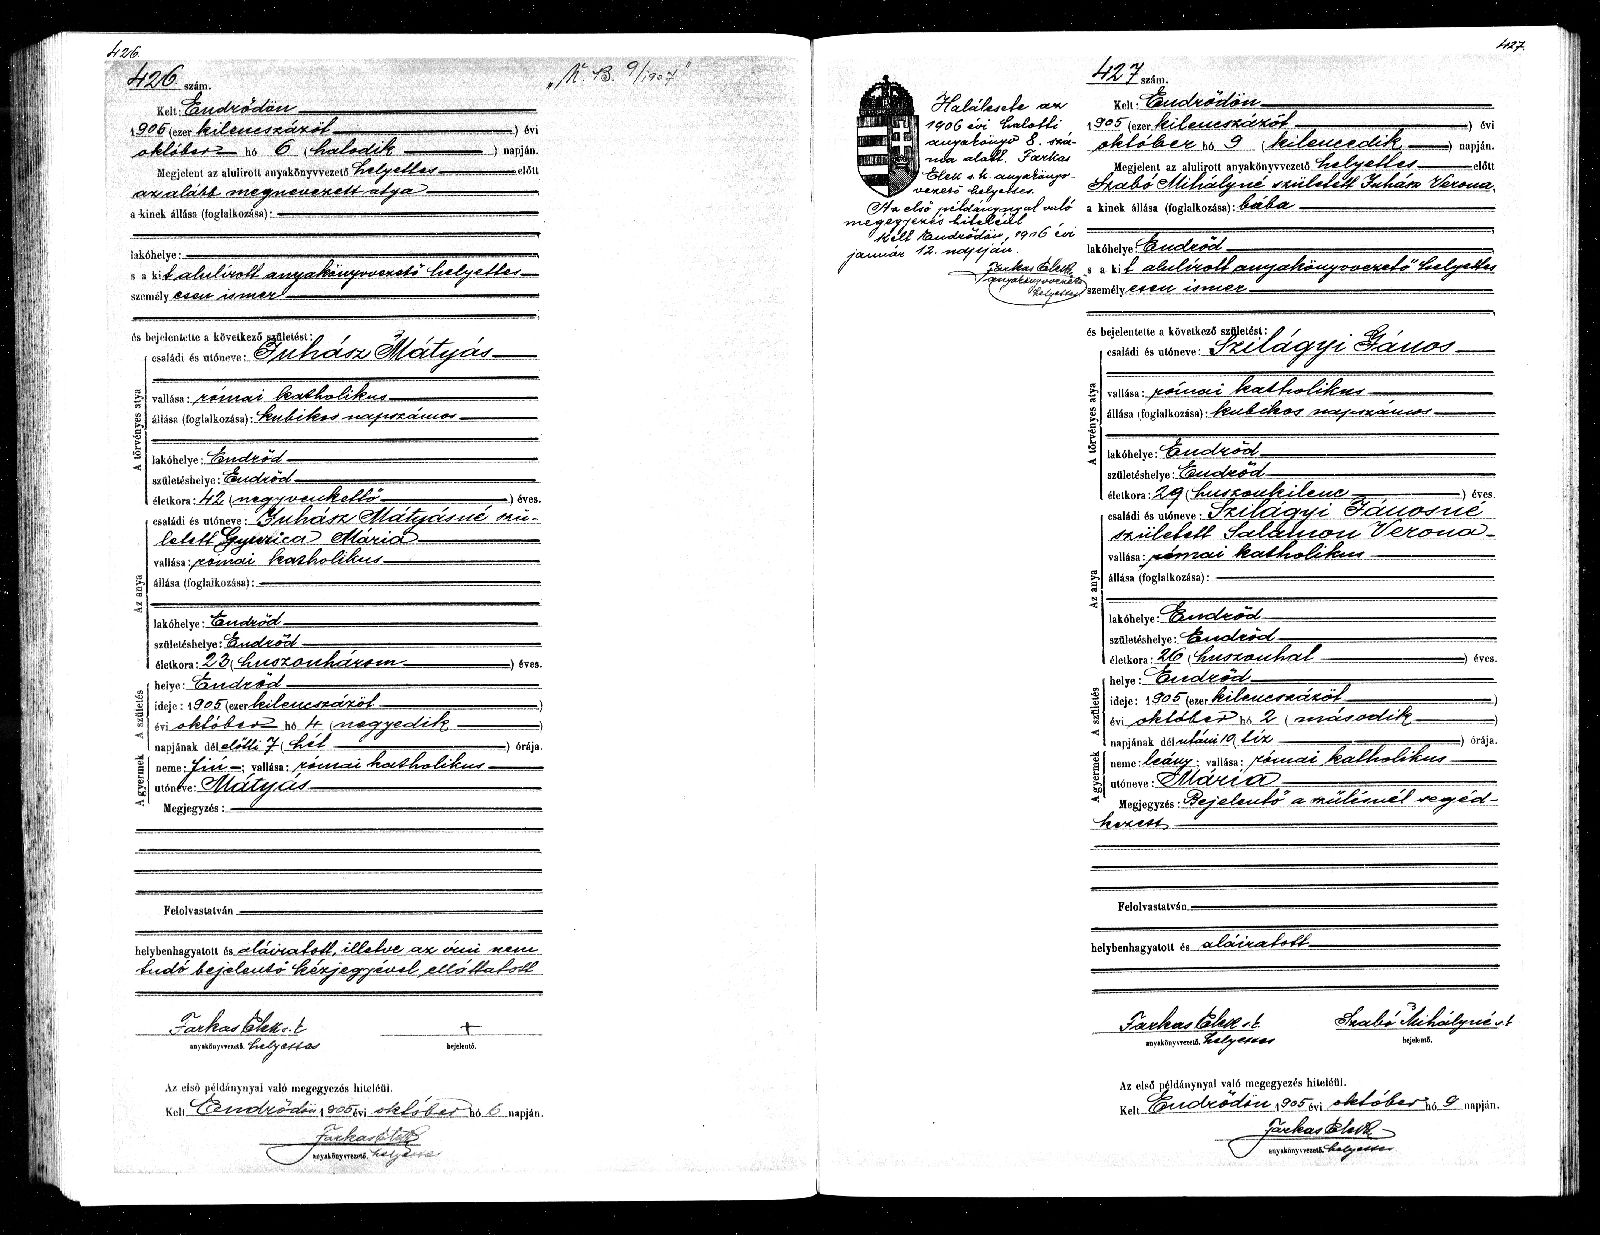 426.
426 szám.
„K. B. 9/1907"
Kelt: Endrődön
1905 (ezer kilencszázöt) évi
október hó 6 (hatodik) napján.
Megjelent az alulirott anyakönyvvezető helyettes előtt
az alább megnevezett atya
a kinek állása (foglalkozása):
lakóhelye:
s a kit alulirott anyakönyvvezető helyettes
személyesen ismer
és bejelentette a következő születést:
A törvényes atya
családi és utóneve: Juhász Mátyás
vallása: római katholikus
állása (foglalkozása): kubikos napszámos
lakóhelye: Endrőd
születéshelye: Endrőd
életkora: 42 (negyvenkettő) éves.
Az anya
családi és utóneve: Juhász Mátyásné szü-
letett Gyuricza Mária
vallása: római katholikus
állása (foglalkozása):
lakóhelye: Endrőd
születéshelye: Endrőd
életkora: 23 (huszonhárom) éves.
A születés
helye: Endrőd
ideje: 1905 (ezer kilencszázöt)
évi október hó 4 (negyedik)
napjának dél előtti 7 (hét) órája.
A gyermek
neme: fiú; vallása: római katholikus
utóneve: Mátyás
Megjegyzés:
Felolvastatván
helybenhagyatott és aláiratott, illetve az irni nem
tudó bejelentő kézjegyével elláttatott
Farkas Elek s. k. +
anyakönyvvezető. helyettes bejelentő.
Az első példánynyal való megegyezés hiteléül.
Kelt Endrődön 1905 évi október hó 6 napján.
Farkas Elek
anyakönyvvezető. helyettes
427.
Halálesete az
1906 évi halotti
anyakönyv 8. szá-
ma alatt. Farkas
Elek s. k. anyakönyv-
vezető helyettes.
Az első példánynyal való
megegyezés hiteléül
Kelt Endrődön, 1906 évi
január 12. napján.
Farkas Elek
anyakönyvvezető
helyettes
427 szám.
Kelt: Endrődön
1905 (ezer kilencszázöt) évi
október hó 9 (kilencedik) napján.
Megjelent az alulirott anyakönyvvezető helyettes előtt
Szabó Mihályné született Juhász Verona,
a kinek állása (foglalkozása): bába
lakóhelye: Endrőd
s a kit alulirott anyakönyvvezető helyettes
személyesen ismer
és bejelentette a következő születést:
A törvényes atya
családi és utóneve: Szilágyi János
vallása: római katholikus
állása (foglalkozása): kubikos napszámos
lakóhelye: Endrőd
születéshelye: Endrőd
életkora: 29 (huszonkilenc) éves.
Az anya
családi és utóneve: Szilágyi Jánosné
született Salamon Verona
vallása: római katholikus
állása (foglalkozása):
lakóhelye: Endrőd
születéshelye: Endrőd
életkora: 26 (huszonhat) éves.
A születés
helye: Endrőd
ideje: 1905 (ezer kilencszázöt)
évi október hó 2 (második)
napjának dél utáni 10 (tiz) órája.
A gyermek
neme: leány; vallása: római katholikus
utóneve: Mária
Megjegyzés: Bejelentő a szülésnél segéd-
kezett
Felolvastatván
helybenhagyatott és aláiratott
Farkas Elek s. k. Szabó Mihályné s. k.
anyakönyvvezető. helyettes bejelentő.
Az első példánynyal való megegyezés hiteléül.
Kelt Endrődön 1905 évi október hó 9 napján.
Farkas Elek
anyakönyvvezető. helyettes